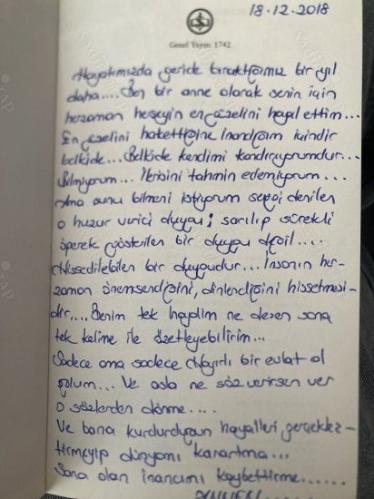 18.12.2018
Genel Yayın: 1742
Hayatımızda geride bıraktığımız bir yıl
daha.... Ben bir anne olarak senin için
herzaman herşeyin en güzelini hayal ettim...
En güzelini hakettiğine inandığım içindir
belkide... Belkide kendimi kandırıyorumdur...
Bilmiyorum... İlerisini tahmin edemiyorum...
Ama şunu bilmeni istiyorum sevgi denilen
o huzur verici duygu; sarılıp sürekli
öperek gösterilen bir duygu değil....
Hissedilebilen bir duygudur... İnsanın her-
zaman önemsendiğini, dinlendiğini hissetmesi-
dir.... Benim tek hayalim ne dersen sana
tek kelime ile özetleyebilirim...
Sadece ama sadece hayırlı bir evlat ol
oğlum... Ve asla ne söz verirsen ver
o sözlerden dönme....
Ve bana kurdurduğun hayalleri, gerçekleş-
tirmeyip dünyamı karartma...
Sana olan inancımı kaybettirme......